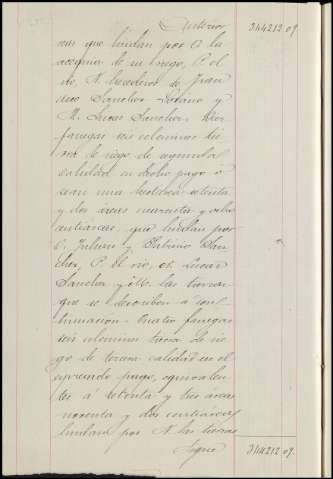 Anterior 344212.09
res que lindan por O. la
acequia de su riego, P. el
rio, N. herederos de Fran
cisco Sanchez Lozano y
M. Lucas Sanchez. Diez
fanegas seis celemines tie
rra de riego de segunda
calidad en dicho pago o
sean una hectárea setenta
y dos áreas noventa y ocho
centiáreas, que lindan por
O. Julian y Sanchez,
P. el rio, N. Lucas
Sanchez y M. las tierras
que se describen á con
tinuacion. Cuatro fanegas
seis celemines tierra de rie
go de tercera calidad en el
expresado pago, equivalen
tes á setenta y tres áreas
noventa y dos centiáreas
lindan por N. las tierras
Sigue 344212.09